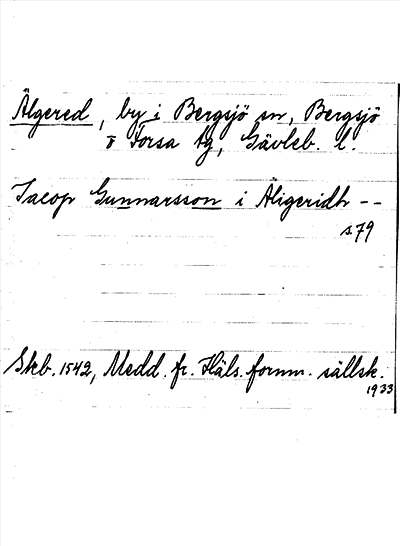 Älgered, by i Bergsjö sn, Bergsjö
o Forsa tg, Gävleb. l.
Jacop Gunnarsson i Äligeridh --
s. 79
Skb. 1542, Medd. fr. Häls. fornm. sällsk.
1933